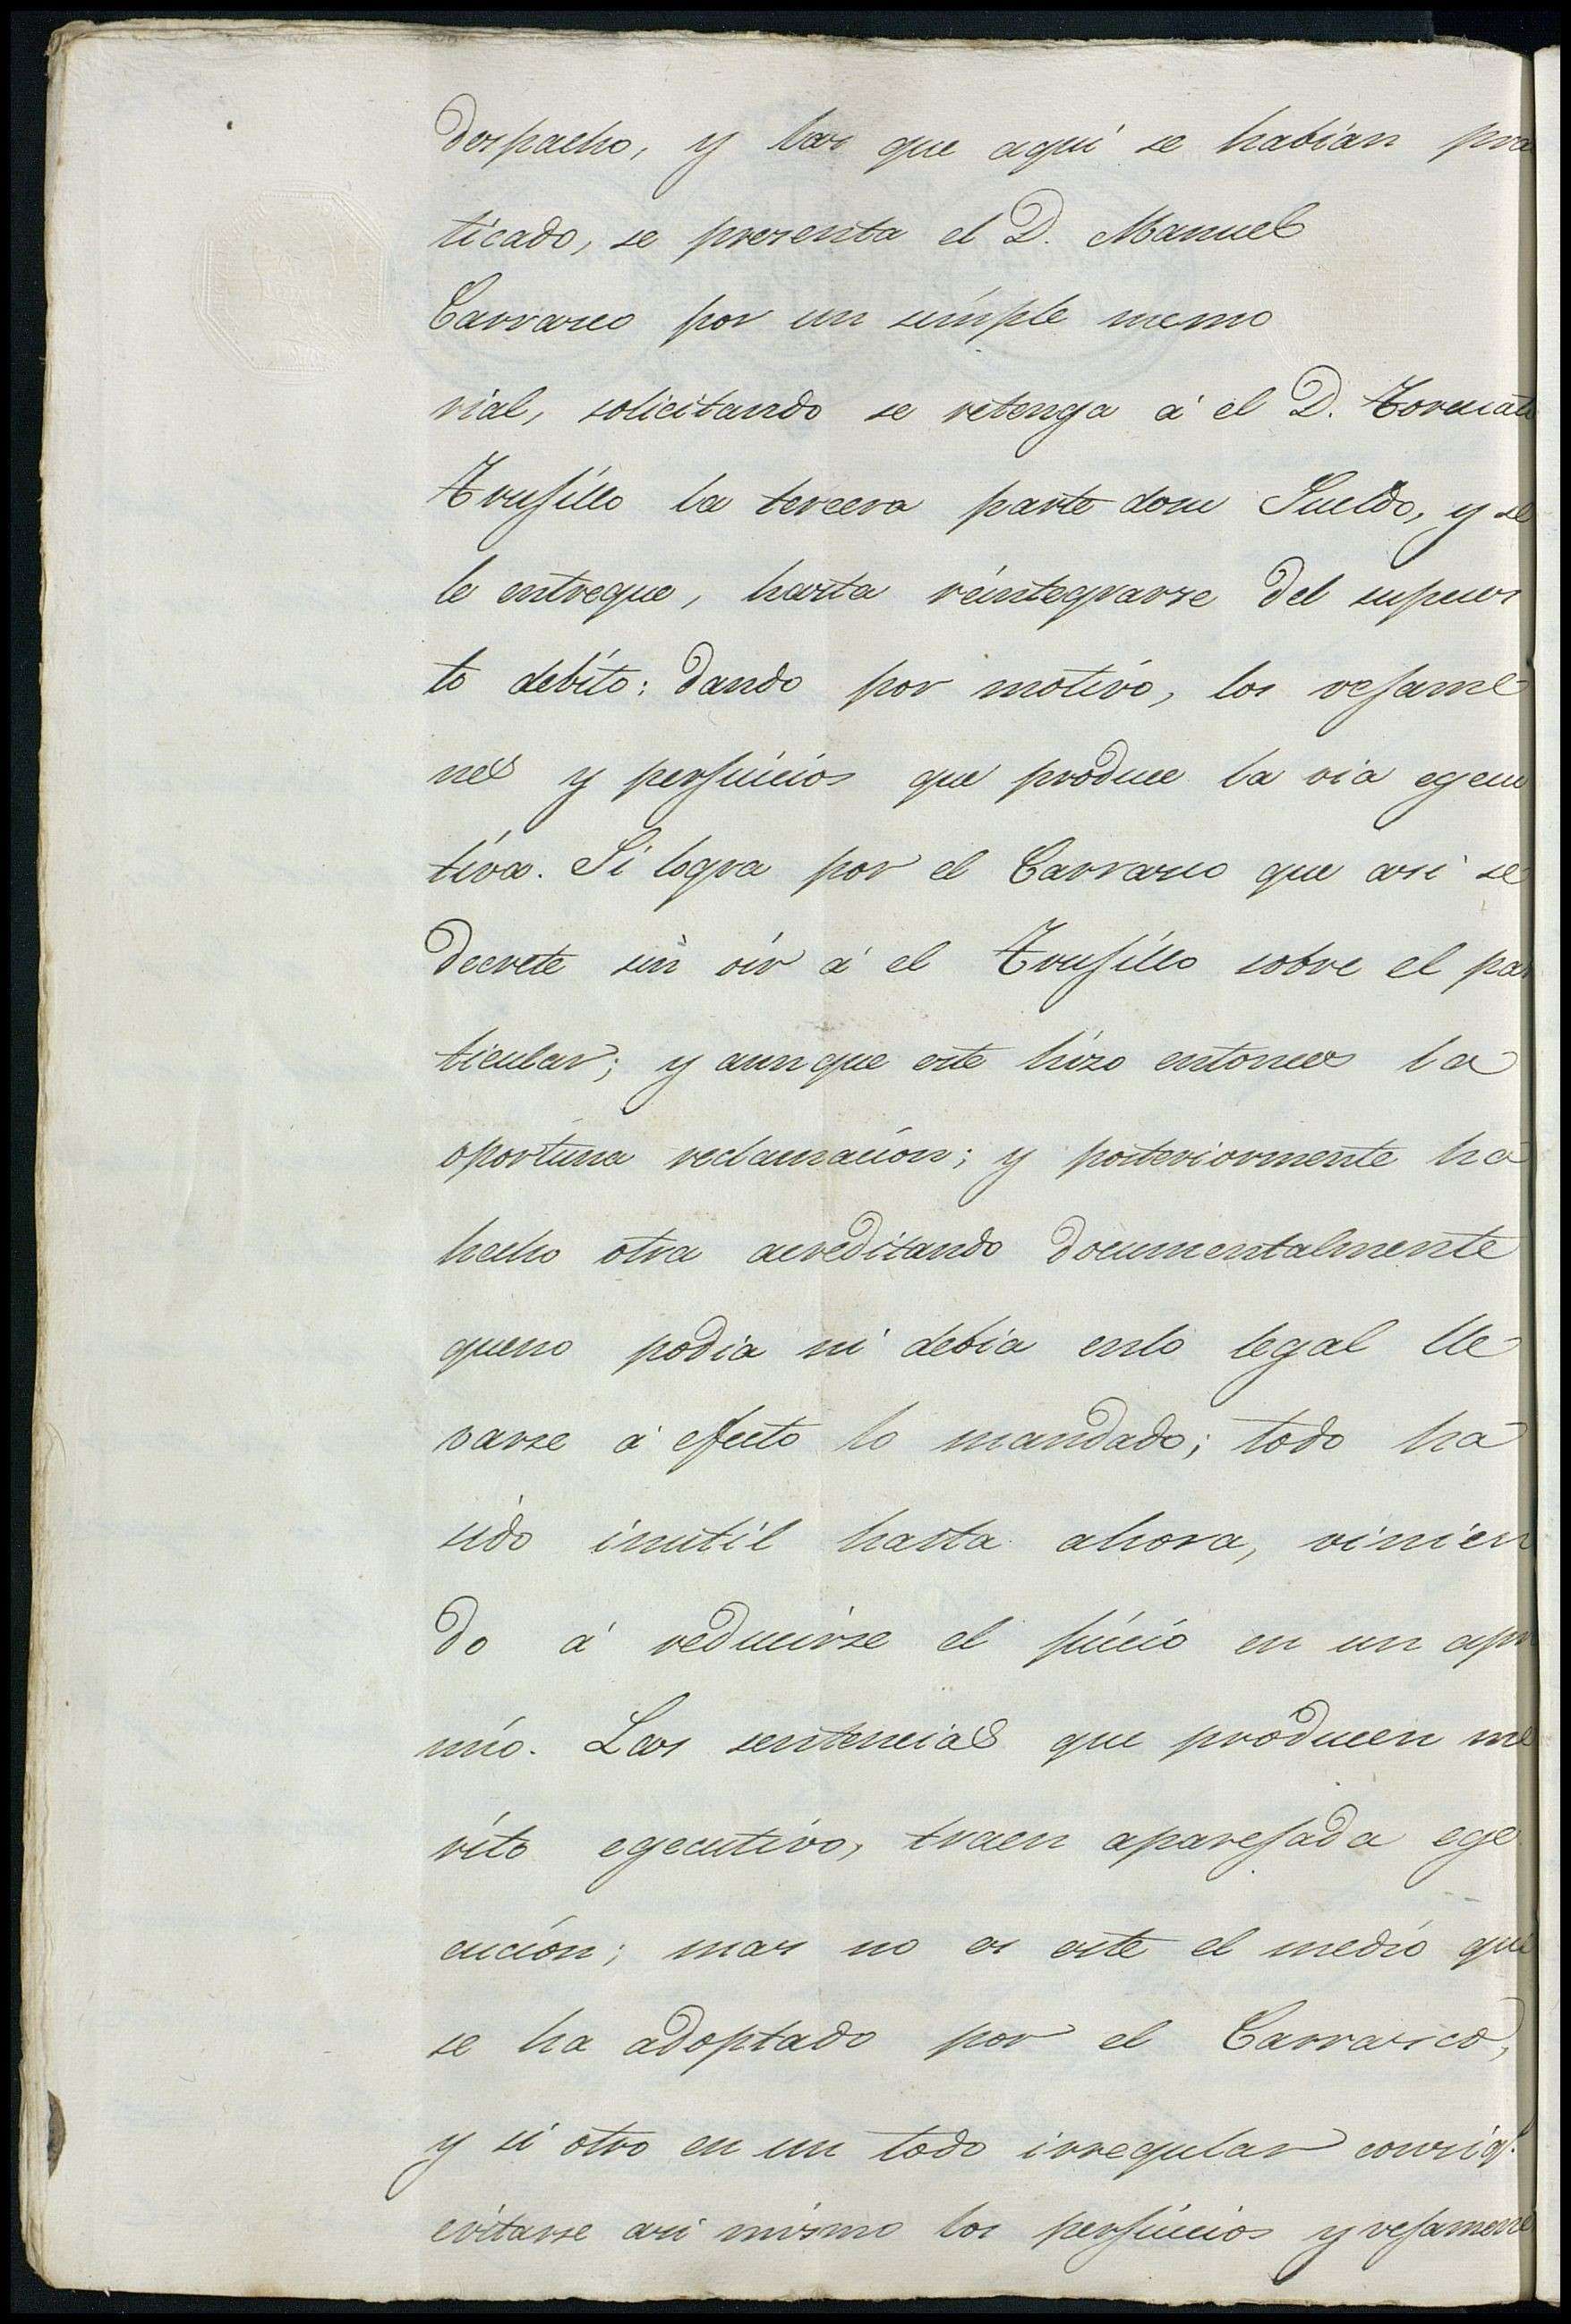 despacho, y las que aqui se habian pra
ticado, se presenta el D. Manuel
Carrasco por un simple memo
rial, solicitando se retenga á el D. Torcuato
Trujillo la tercera parte desu Sueldo, y se
le entregue, hasta reintegrarse del supues
to debito: dando por motivo, los vejame
nes y perjuicios que produce la via egecu
tiva. Si logra por el Carrasco que asi se
decrete sin oir á el Trujillo sobre el par
ticular; y aunque este hizo entonces la
oportuna reclamacion; y posteriormente ha
hecho otra acreditando documentalmente
queno podia ni debia enlo legal lle
varse á efecto lo mandado; todo ha
sido inutil hasta ahora, vinien
do á reducirse el juicio en un apre
mio. Las sentencias que producen me
rito egecutivo, traen aparejada ege
cucion; mas no es este el medio que
se ha adoptado por el Carrasco,
y si otro en un todo irregular
evitarse asi mismo los perjuicios y vejamene